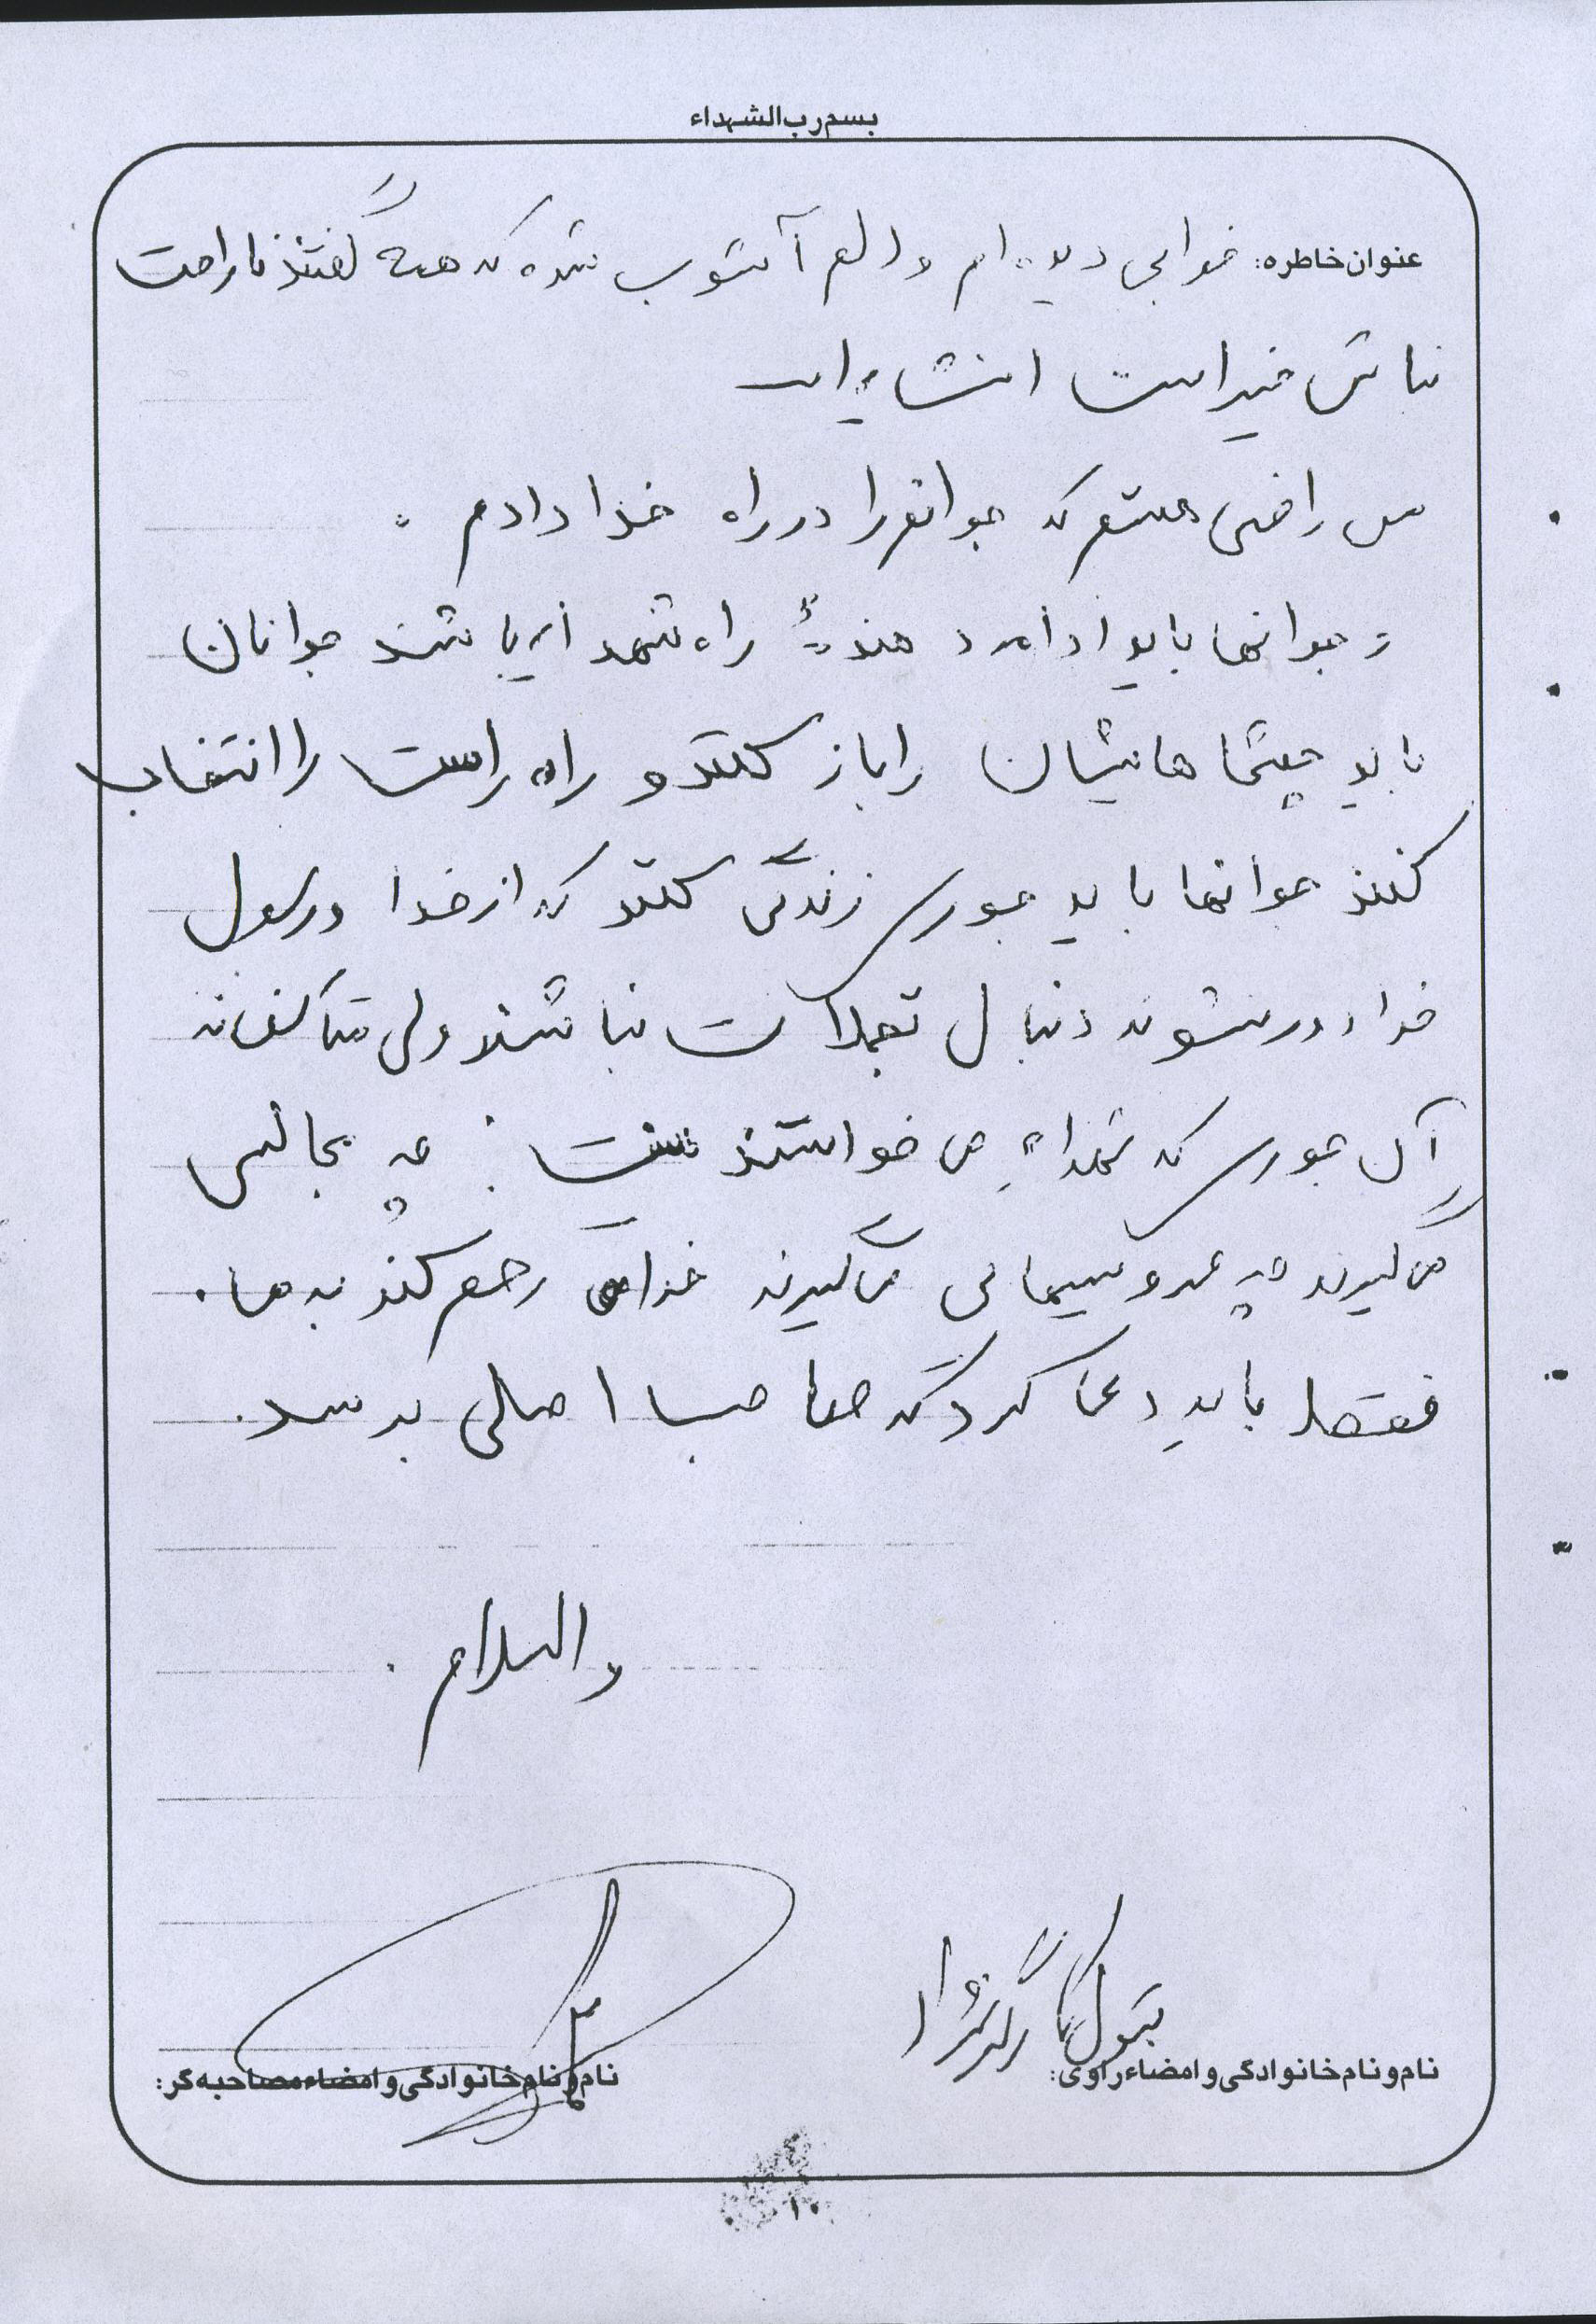 بسم رب الشهداء
عنوان خاطره: خوابی دیده ام و دلم آشوب شده که همه گفتند ناراحت
نباش خیر است انشاءا...
من راضی هستم که جوانم را در راه خدا دادم.
و جوانها باید ادامه دهندهٔ راه شهداء باشند جوانان
باید چشما هایشان را باز کنند و راه راست را انتخاب
کنند جوانها باید جوری زندگی کنند که از خدا و رسول
خدا دور نشوند دنبال تجملات نباشند ولی متأسفانه
آن جوری که شهداء می خواستند نیست. چه مجالس
می گیرند چه عروسیهائی می گیرند خدا رحم کند به ما.
فقط باید دعا کرد که صاحب اصلی برسد.
والسلام.
بتول
نام و نام خانوادگی و امضاء راوی:
نام و نام خانوادگی و امضاء مصاحبه گر:
۱۰